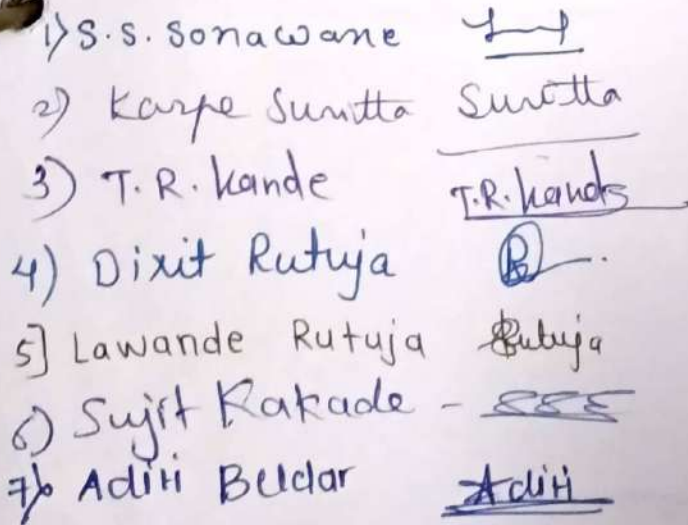 1) S.S. Sonawane
2) Karpe Sunitta Sunitta
3) T. R. Kande T.R. Kande
4) Dixit Rutuja
5] Lawande Rutuja Rutuja
6) Sujit Kakade -
7) Aditi Beldar Aditi